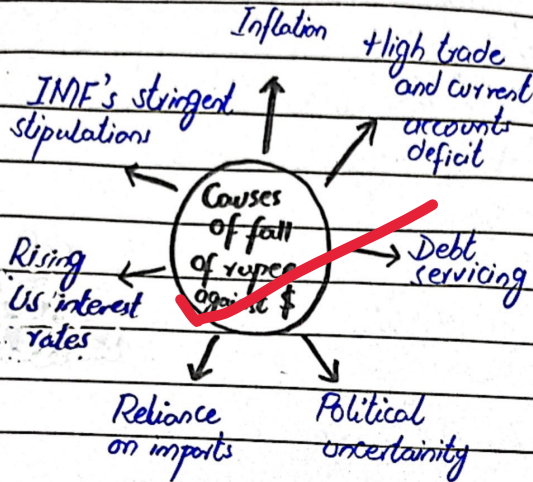 Inflation
High trade
and current
accounts
deficit
IMF's stringent
stipulations
Causes
of fall
of rupee
against $
Debt
servicing
Rising
US interest
rates
Reliance
on imports
Political
uncertainity